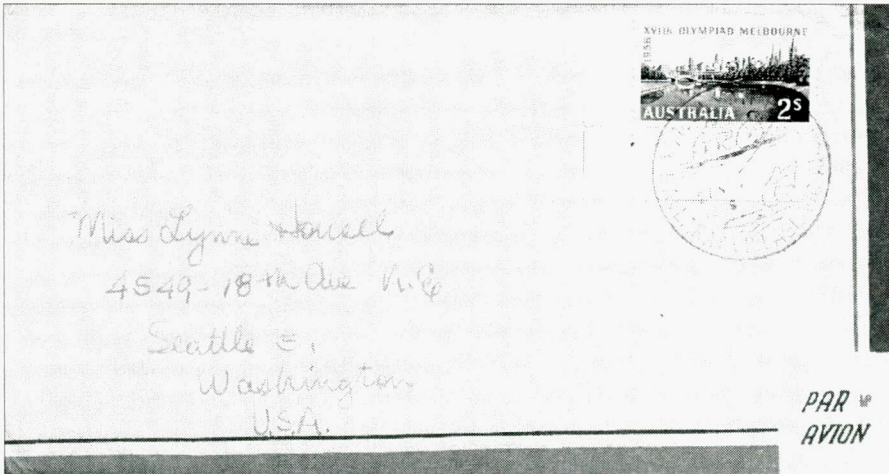 XVIth OLYMPIAD MELBOURNE
1956
AUSTRALIA 2S
Miss Lynne Housel
4549-18th Ave N.E
Seattle 5,
Washington
U.S.A.
PAR
AVION